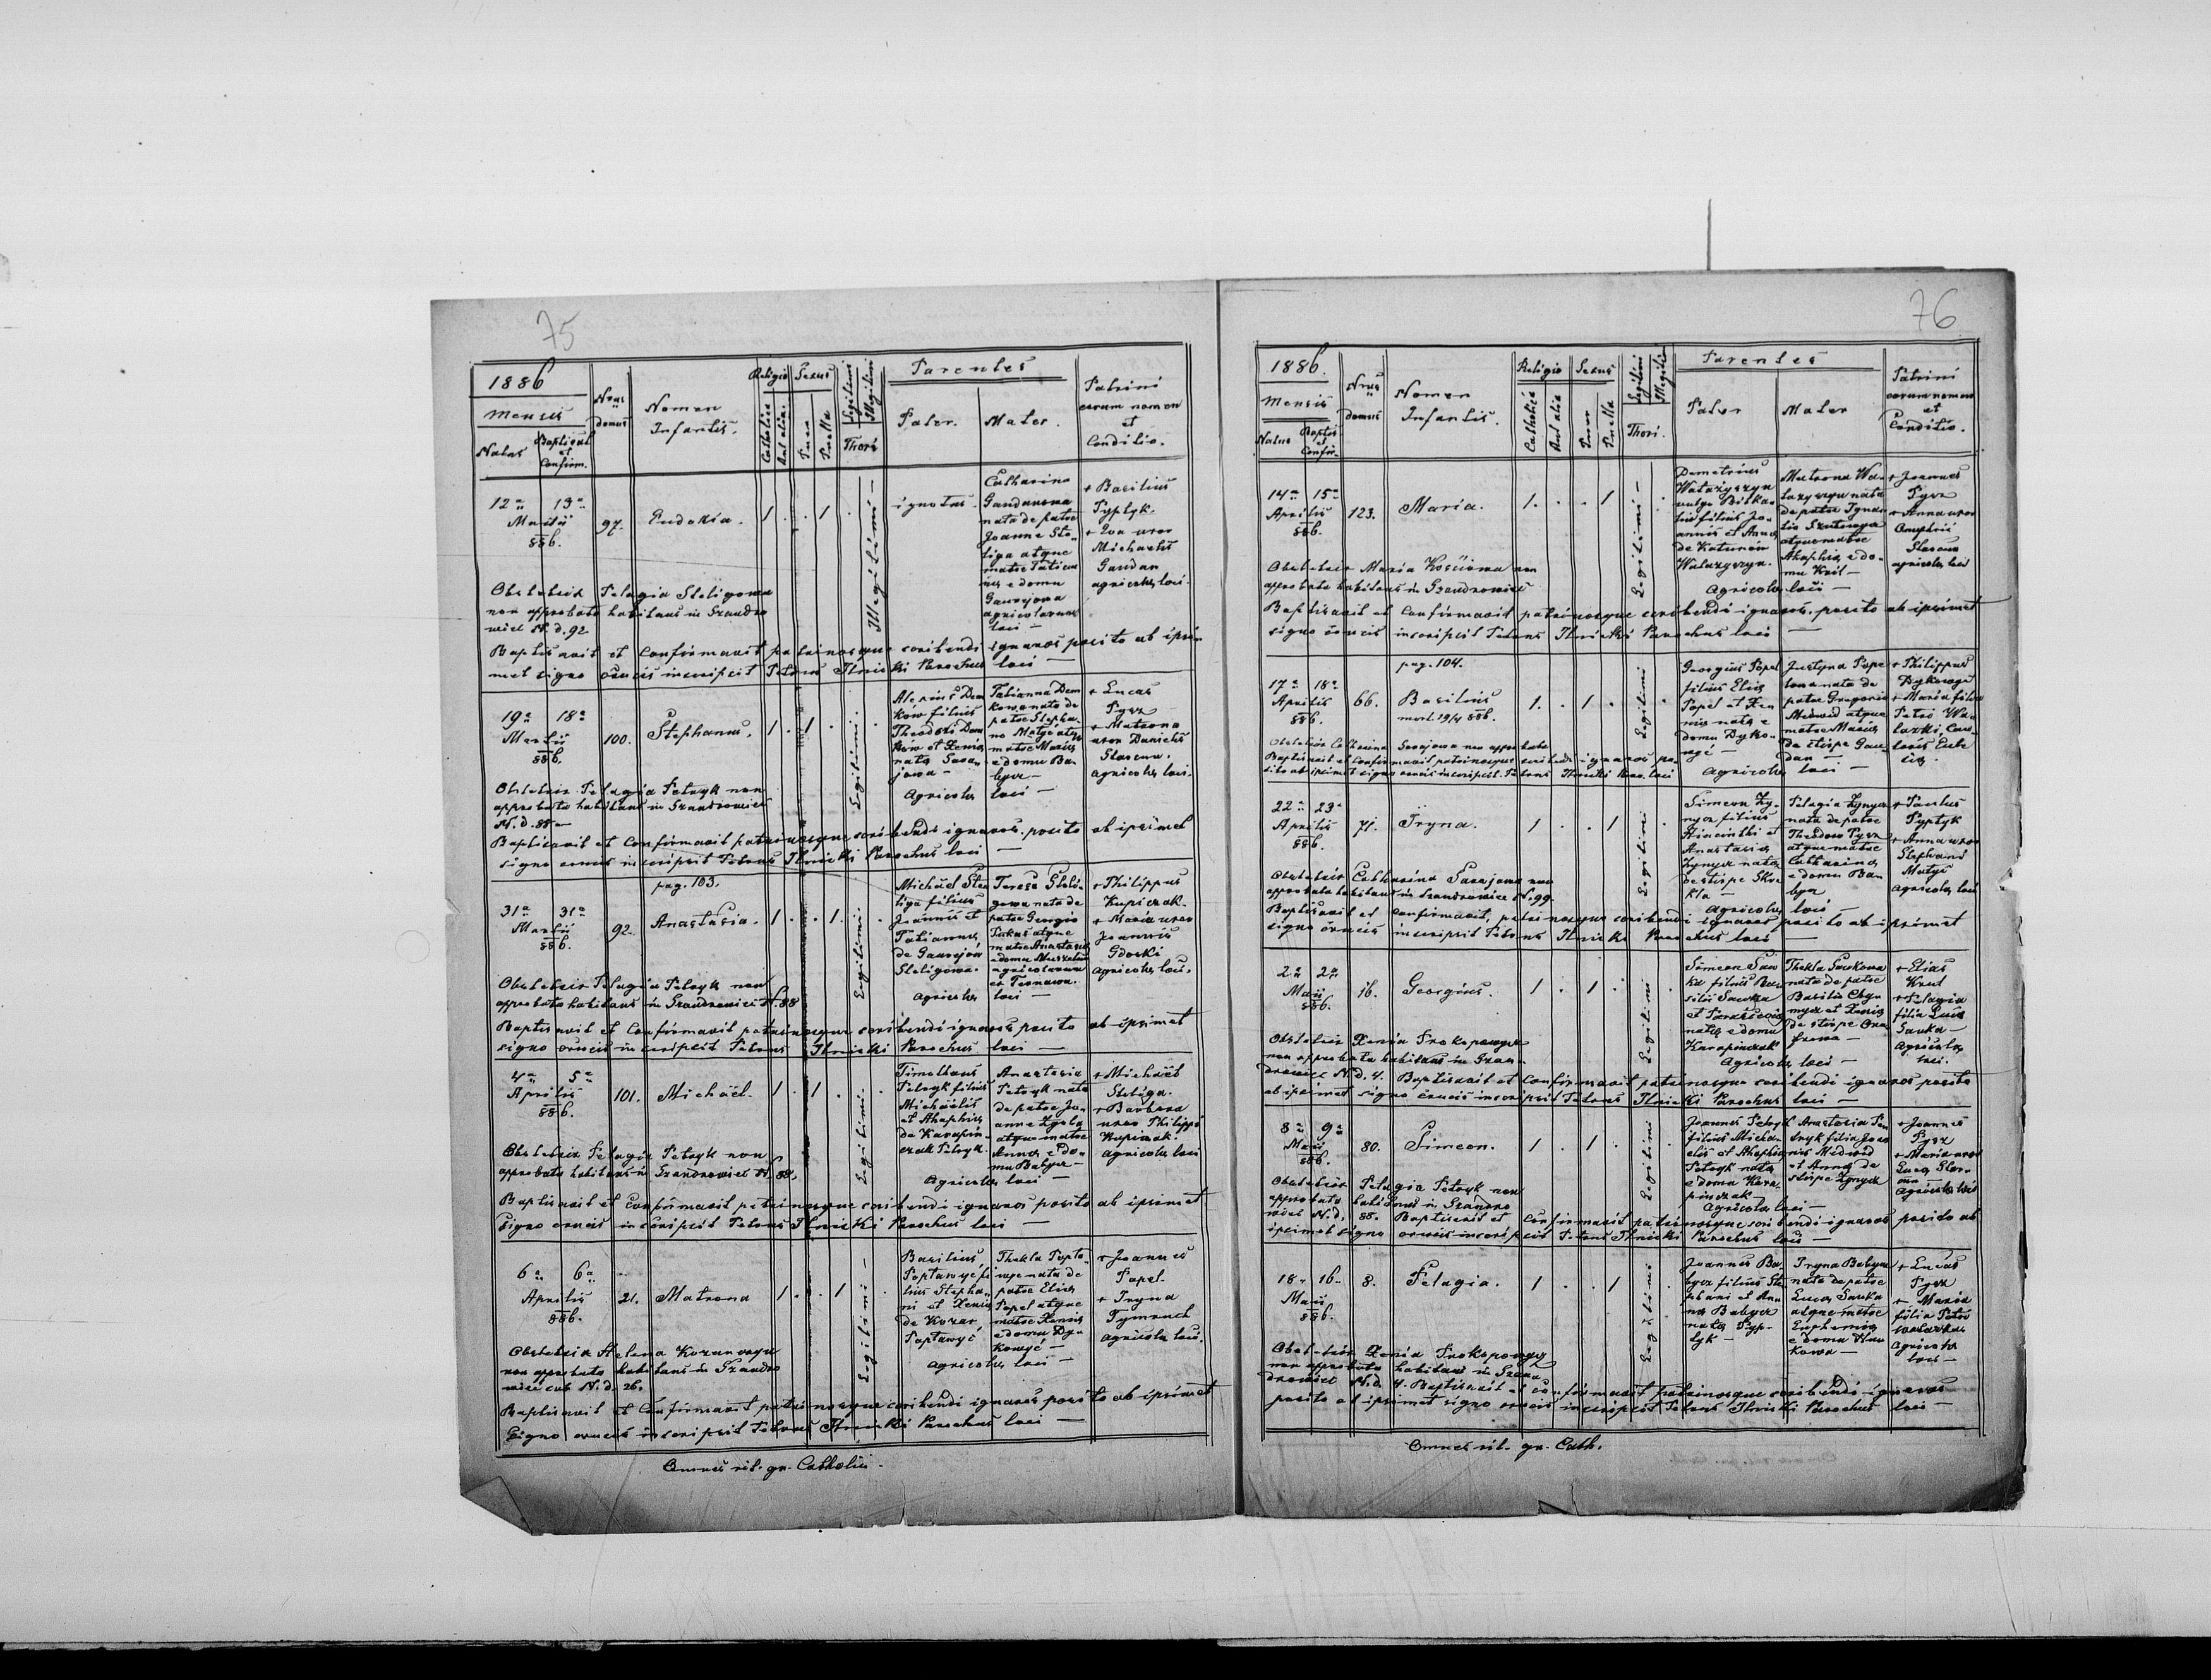 75
1886
Mensis
Natus
Baptisat et Confirm.
Nrus domus
Nomen Infantis.
Religio
Catholica
Aut alia.
Sexus
Puer
Puella
Legitimi
Illegitimi
Thori
Parentes
Pater.
Mater.
Patrini
eorum nomen
et
Conditio.
12a 13a
Martii
886.
97.
Eudokia.
1 . . 1 .
Illegitimi —
ignotus.
Catharina
nata de patre
Joanne Ste-
liga atque
matre Tatian
na e domu
agricolarum
loci —
+ Basilius
Pyptyk.
+ Eva uxor
Michaelis
Gaudan
agricolae loci.
Obstetrix Pelagia Steligowa
non approbata habitans in Szandro
wiec N. d. 92
Baptisavit et Confirmavit patrinosque scribendi ignaros posito ab ipsi-
met signo crucis inscripsit Petrus Ilnicki Parochus loci —
19a 18a
Martii
886.
100.
Stephanus.
1 . 1 . .
Legitimi.
Alexius Dem
ków filius
Theodori Dem
ków et Xenia
nata Sava-
jowa —
Tatianna Dem
kowa nata de
patre Stepha-
no Matye atque
matre Maria
e domu Ba-
bycz —
Agricolae loci —
+ Lucas
Pysz
+ Matrona
uxor Danielis
Agricolae loci.
Obstetrix Pelagia Petryk non
approbata habitans in Szandrowiec
N. d. 88 —
Baptisavit et Confirmavit patrinosque scribendi ignaros posito ab ipsimet
signo crucis inscripsit Petrus Ilnicki Parochus loci —
pag. 103.
31a 31a
Martii
886.
92.
Anastasia.
1 . . 1. .
Legitimi.
Michael Ste
liga filius
Joannis et
Tatianna
Steligowa.
Teresa Steli-
gowa nata de
patre Georgio
matre Anastasia
e domu
agricolarum
Agricolae loci —
+ Philippus
Kupiczak.
+ Maria uxor
Joannis
Gdoski
agricolae loci.
Obstetrix Pelagia Petryk non
approbata habitans in Szandrowiec N. 88
Baptisavit et Confirmavit patrinosque scribendi ignaros posito ab ipsimet
signo crucis inscripsit Petrus Ilnicki Parochus loci —
4a 5a
Aprilis
886.
101.
Michaël.
1 . 1 . .
Legitimi.
Timotheus
Petryk filius
Michaëlis
et Ahaphia
de Karapin-
czak Petryk.
Anastasia
Petryk nata
de patre Jo-
anne Zgola
atque matre
Anna e do-
mu Babycz —
Agricolae loci —
+ Michaël
Steliga.
+ Barbara
uxor Philippi
Kupiczak.
Agricolae loci
Obstetrix Pelagia Petryk non
approbata habitans in Szandrowiec N. 88.
Baptisavit et Confirmavit patrinosque scribendi ignaros posito ab ipsimet
signo crucis inscripsit Petrus Ilnicki Parochus loci —
6a 6a
Aprilis
886.
21.
Matrona
1 . . 1 .
Legitimi —
Basilius
lius Stepha-
ni et Xenia
de Kozar,
Poptawyć
wyc nata de
patre Elia
Popel atque
matre Xenia
e domu Dy-
kowyć —
Agricolae loci —
+ Joannes
Popel.
+ Iryna
Tymruch
Agricolae loci.
Obstetrix Helena
non approbata habitans in Szandro
wiec sub N. d. 26.
Baptisavit et Confirmavit patrinosque scribendi ignaros posito ab ipsimet
signo crucis inscripsit Petrus Ilnicki Parochus loci —
Omnes rit. gr. Catholici.
76
1886.
Mensis
Natus
Baptis et Confir-
Nrus domus
Nomen
Infantis.
Religio
Catholica
Aut alia
Sexus
Puer
Puella
Legitimi
Illegitimi
Thori.
Parentes
Pater
Mater
Patrini
eorum nomen
et
Conditio.
14a 15a
Aprilis
886.
123.
Maria.
1. . . 1 .
Legitimi —
Demetrius
Watazyszyn
vulgo Bitka-
lius filius Jo-
annis et Anna
de
Watazyszyn.
Matrona Wa-
tazyszyn nata
de patre Igna-
tio
atque matre
Ahaphia e do-
mu Kril —
Agricolae loci —
+ Joannes
Pysz
+ Anna uxor
agricolae loci
Obstetrix Maria Kościowa non
approbata habitans in Szandrowiec
Baptisavit et Confirmavit patrinosque scribendi ignaros, posito ab ipsimet
signo crucis inscripsit Petrus Ilnicki Parochus loci —
pag. 104.
17a 18a
Aprilis
886.
66.
Basilius
mort. 19/4 886.
1. . 1 . .
Legitimi
Georgius Popel
filius Elia
Popel et Xe-
nia nata e
domu Dyko-
wyć —
Justyna Pope
lowa nata de
patre Gregorio
Medwid atque
matre Maria
de stirpe Gau-
dan —
Agricolae loci —
+ Philippus
+ Maria filia
Petro Wa-
Obstetrix Catharina Savojowa non approbata
Baptisavit et Confirmavit patrinosque scribendi ignaros po-
sito ab ipsimet signo crucis inscripsit. Petrus Ilnicki Par. loci
22a 23a
Aprilis
886.
71.
Iryna.
1 . . 1 .
Legitimi
Simeon Zy-
nycz filius
Hiacinthi et
Anastasia
Zynycz nata
de stirpe Skre
kla
Pelagia Zynycz
nata de patre
Theodoro Pysz
atque matre
Catharina
e domu Ba-
bycz
Agricolae loci —
+ Paulus
Pyptyk
+ Anna uxor
Stephani
Matye
Agricolae loci
Obstetrix Catharina Savojowa non
approbata habitans in Szandrowiec N. 99.
Baptisavit et Confirmavit, patrinosque scribendi ignaros posito ab ipsimet
signo crucis inscripsit Petrus Ilnicki Parochus loci —
2a 2a
Maii
886.
16.
Georgius.
1 . 1 . .
Legitimi
Simeon Sau
ka filius Ba-
silii Sauka
et Parascevia
nata e domu
Karapinczak
Thekla Saukowa
nata de patre
Basilio Chy-
mycz et Xenia
de stirpe Ona
frewa —
Agricolae loci —
+ Elias
Krul
+ Pelagia
filia Luca
Sauka —
Agricolae
loci.
Obstetrix Xenia Prokopowycz
non approbata habitans in Szan-
drowiec N. d. 4. Baptisavit et Confirmavit patrinosque scribendi ignaros posito
ab ipsimet signo crucis inscripsit Petrus Ilnicki Parochus loci —
8a 9a
Maii
886.
80.
Simeon.
1 . 1 . .
Legitimi
Joannes Petryk
filius Micha-
elis et Ahaphia
Petryk nata
e domu Kara
pinczak —
Anastasia Pe-
tryk filia Joan
nis Medwid
et Anna de
stirpe Zynycz
Agricolae loci —
+ Joannes
Pysz
+ Maria uxor
Agricolae loci
Obstetrix Pelagia Petryk non
approbata habitans in Szandro
wiec N. d. 88. Baptisavit et Confirmavit patrinosque scribendi ignaros posito ab
ipsimet signo crucis inscripsit Petrus Ilnicki Parochus loci —
18a 16a
Maii
886.
8.
Pelagia.
1 . . 1 .
Legitimi
Joannes Ba-
bycz filius Ste
phani et An-
na Babycz
nata Pyp-
tyk —
Iryna Babycz
nata de patre
Luca Sauka
atque matre
Euphemia
e domu
Agricola
+ Lucas
Pysz
+ Maria
filia Petro
Agricolae
loci —
Obstetrix Xenia Prokopowycz
non approbata habitans in Szan-
drowiec N. d. 4. Baptisavit et Confirmavit patrinosque scribendi ignaros
posito ab ipsimet signo crucis inscripsit Petrus Ilnicki Parochus loci —
Omnes rit. gr. Cath.